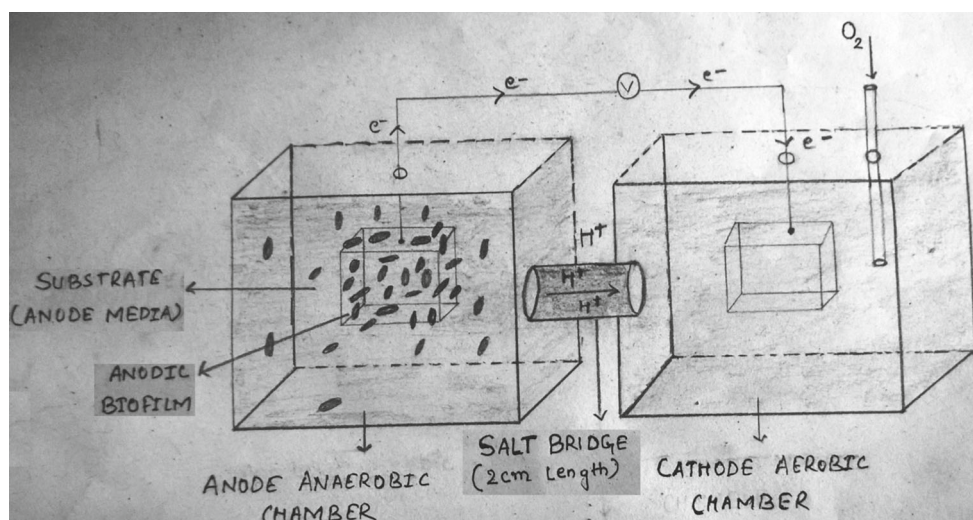 O2
e-
e-
V
e-
e-
H+
H+
H+
SUBSTRATE
(ANODE MEDIA)
ANODIC
BIOFILM
SALT BRIDGE
(2cm Length)
ANODE ANAEROBIC
CHAMBER
CATHODE AEROBIC
CHAMBER